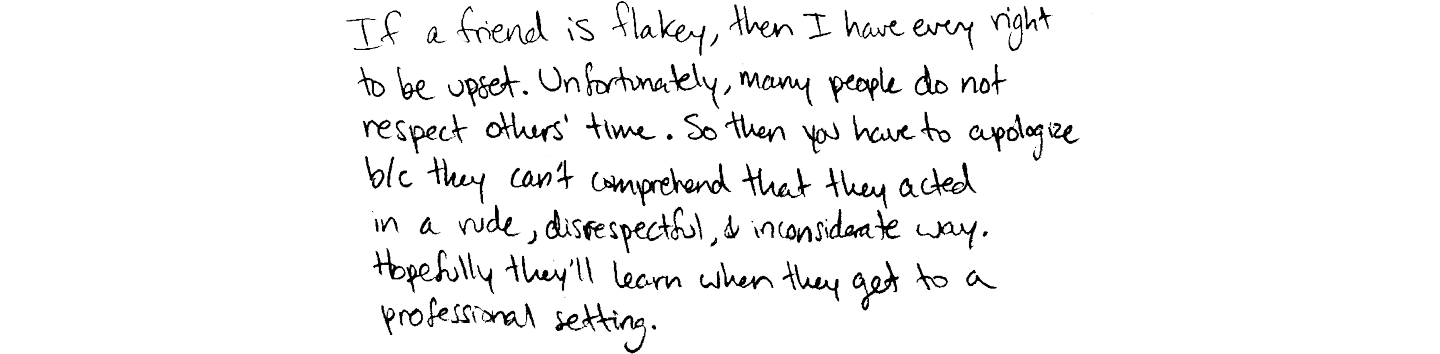 If a friend is flakey, then I have every right
to be upset. Unfortunately, many people do not
respect others' time. So then you have to apologize
b/c they can't comprehend that they acted
in a rude, disrespectful, & inconsiderate way.
Hopefully they'll learn when they get to a
professional setting.